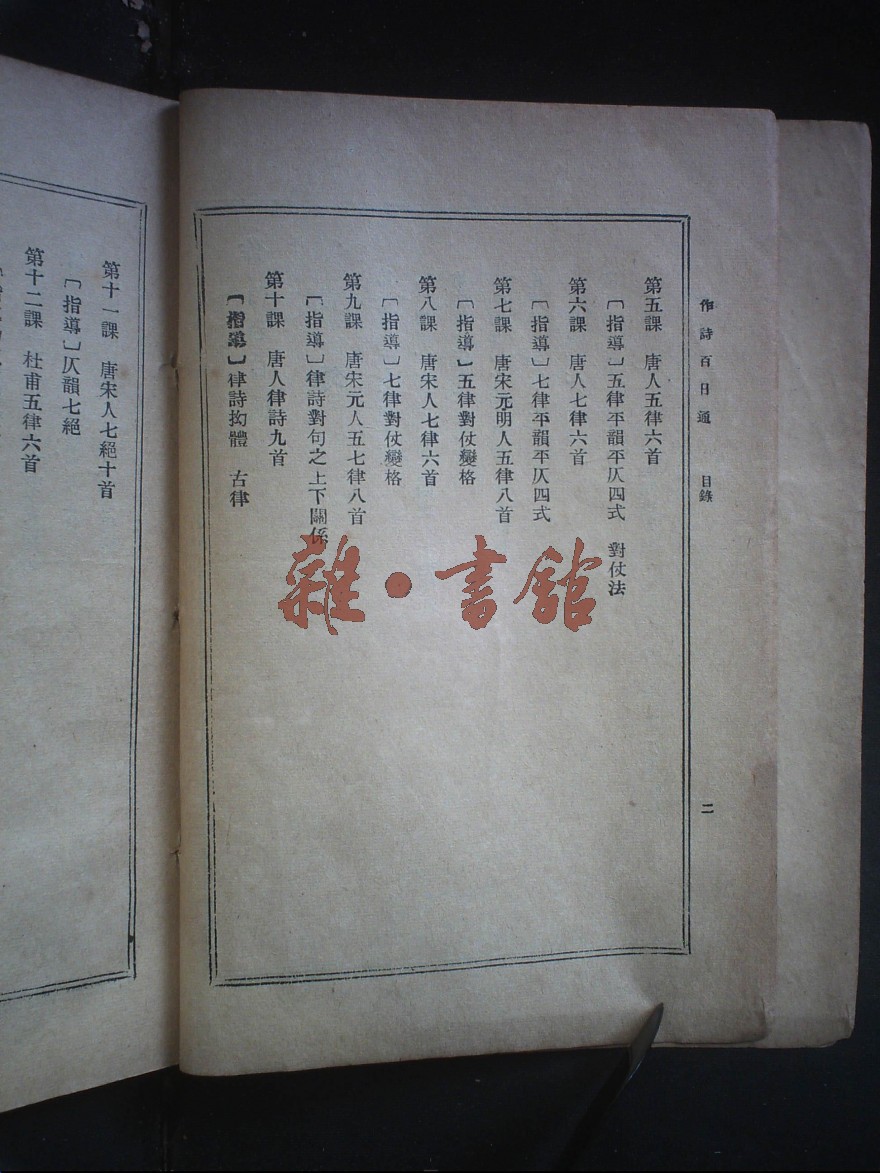 作詩百日通　目錄
二
第五課　唐人五律六首
〔指導〕五律平韻平仄四式　對仗法
第六課　唐人七律六首
〔指導〕七律平韻平仄四式
第七課　唐宋元明人五律八首
〔指導〕五律對仗變格
第八課　唐宋人七律六首
〔指導〕七律對仗變格
第九課　唐宋元人五七律八首
〔指導〕律詩對句之上下關係
第十課　唐人律詩九首
〔指導〕律詩拗體　古律
第十一課　唐宋人七絕十首
〔指導〕仄韻七絕
第十二課　杜甫五律六首
雜·書館